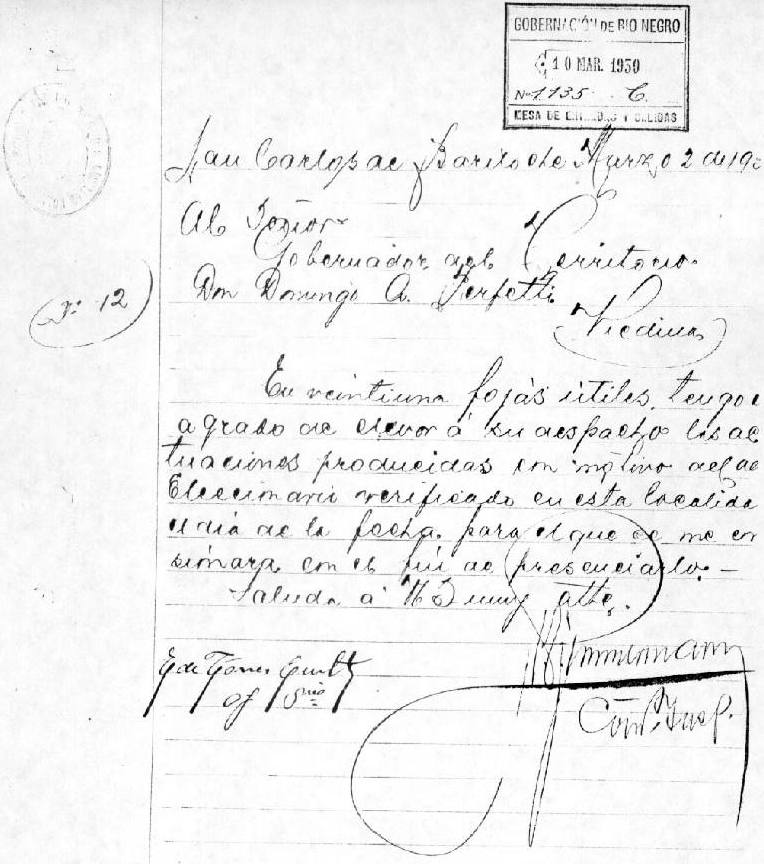 GOBERNACIÓN DE RIO NEGRO
10 MAR. 1930
Nº 1.135 C.
MESA DE ENTRADAS Y SALIDAS
San Carlos de Bariloche Marzo 2 de 19
Al Señor
Gobernador del Territorio
Don Domingo A. Perfetti
Viedma
Nº 12
En veintiuna fojas útiles, tengo e
agrado de elevar á su despacho las ac
tuaciones producidas con motivo del ac
Eleccionario verificado en esta localida
el dia de la fecha para el que se me
con el fin de presenciarlo.-
Saluda á US muy atte.
Com. Insp.